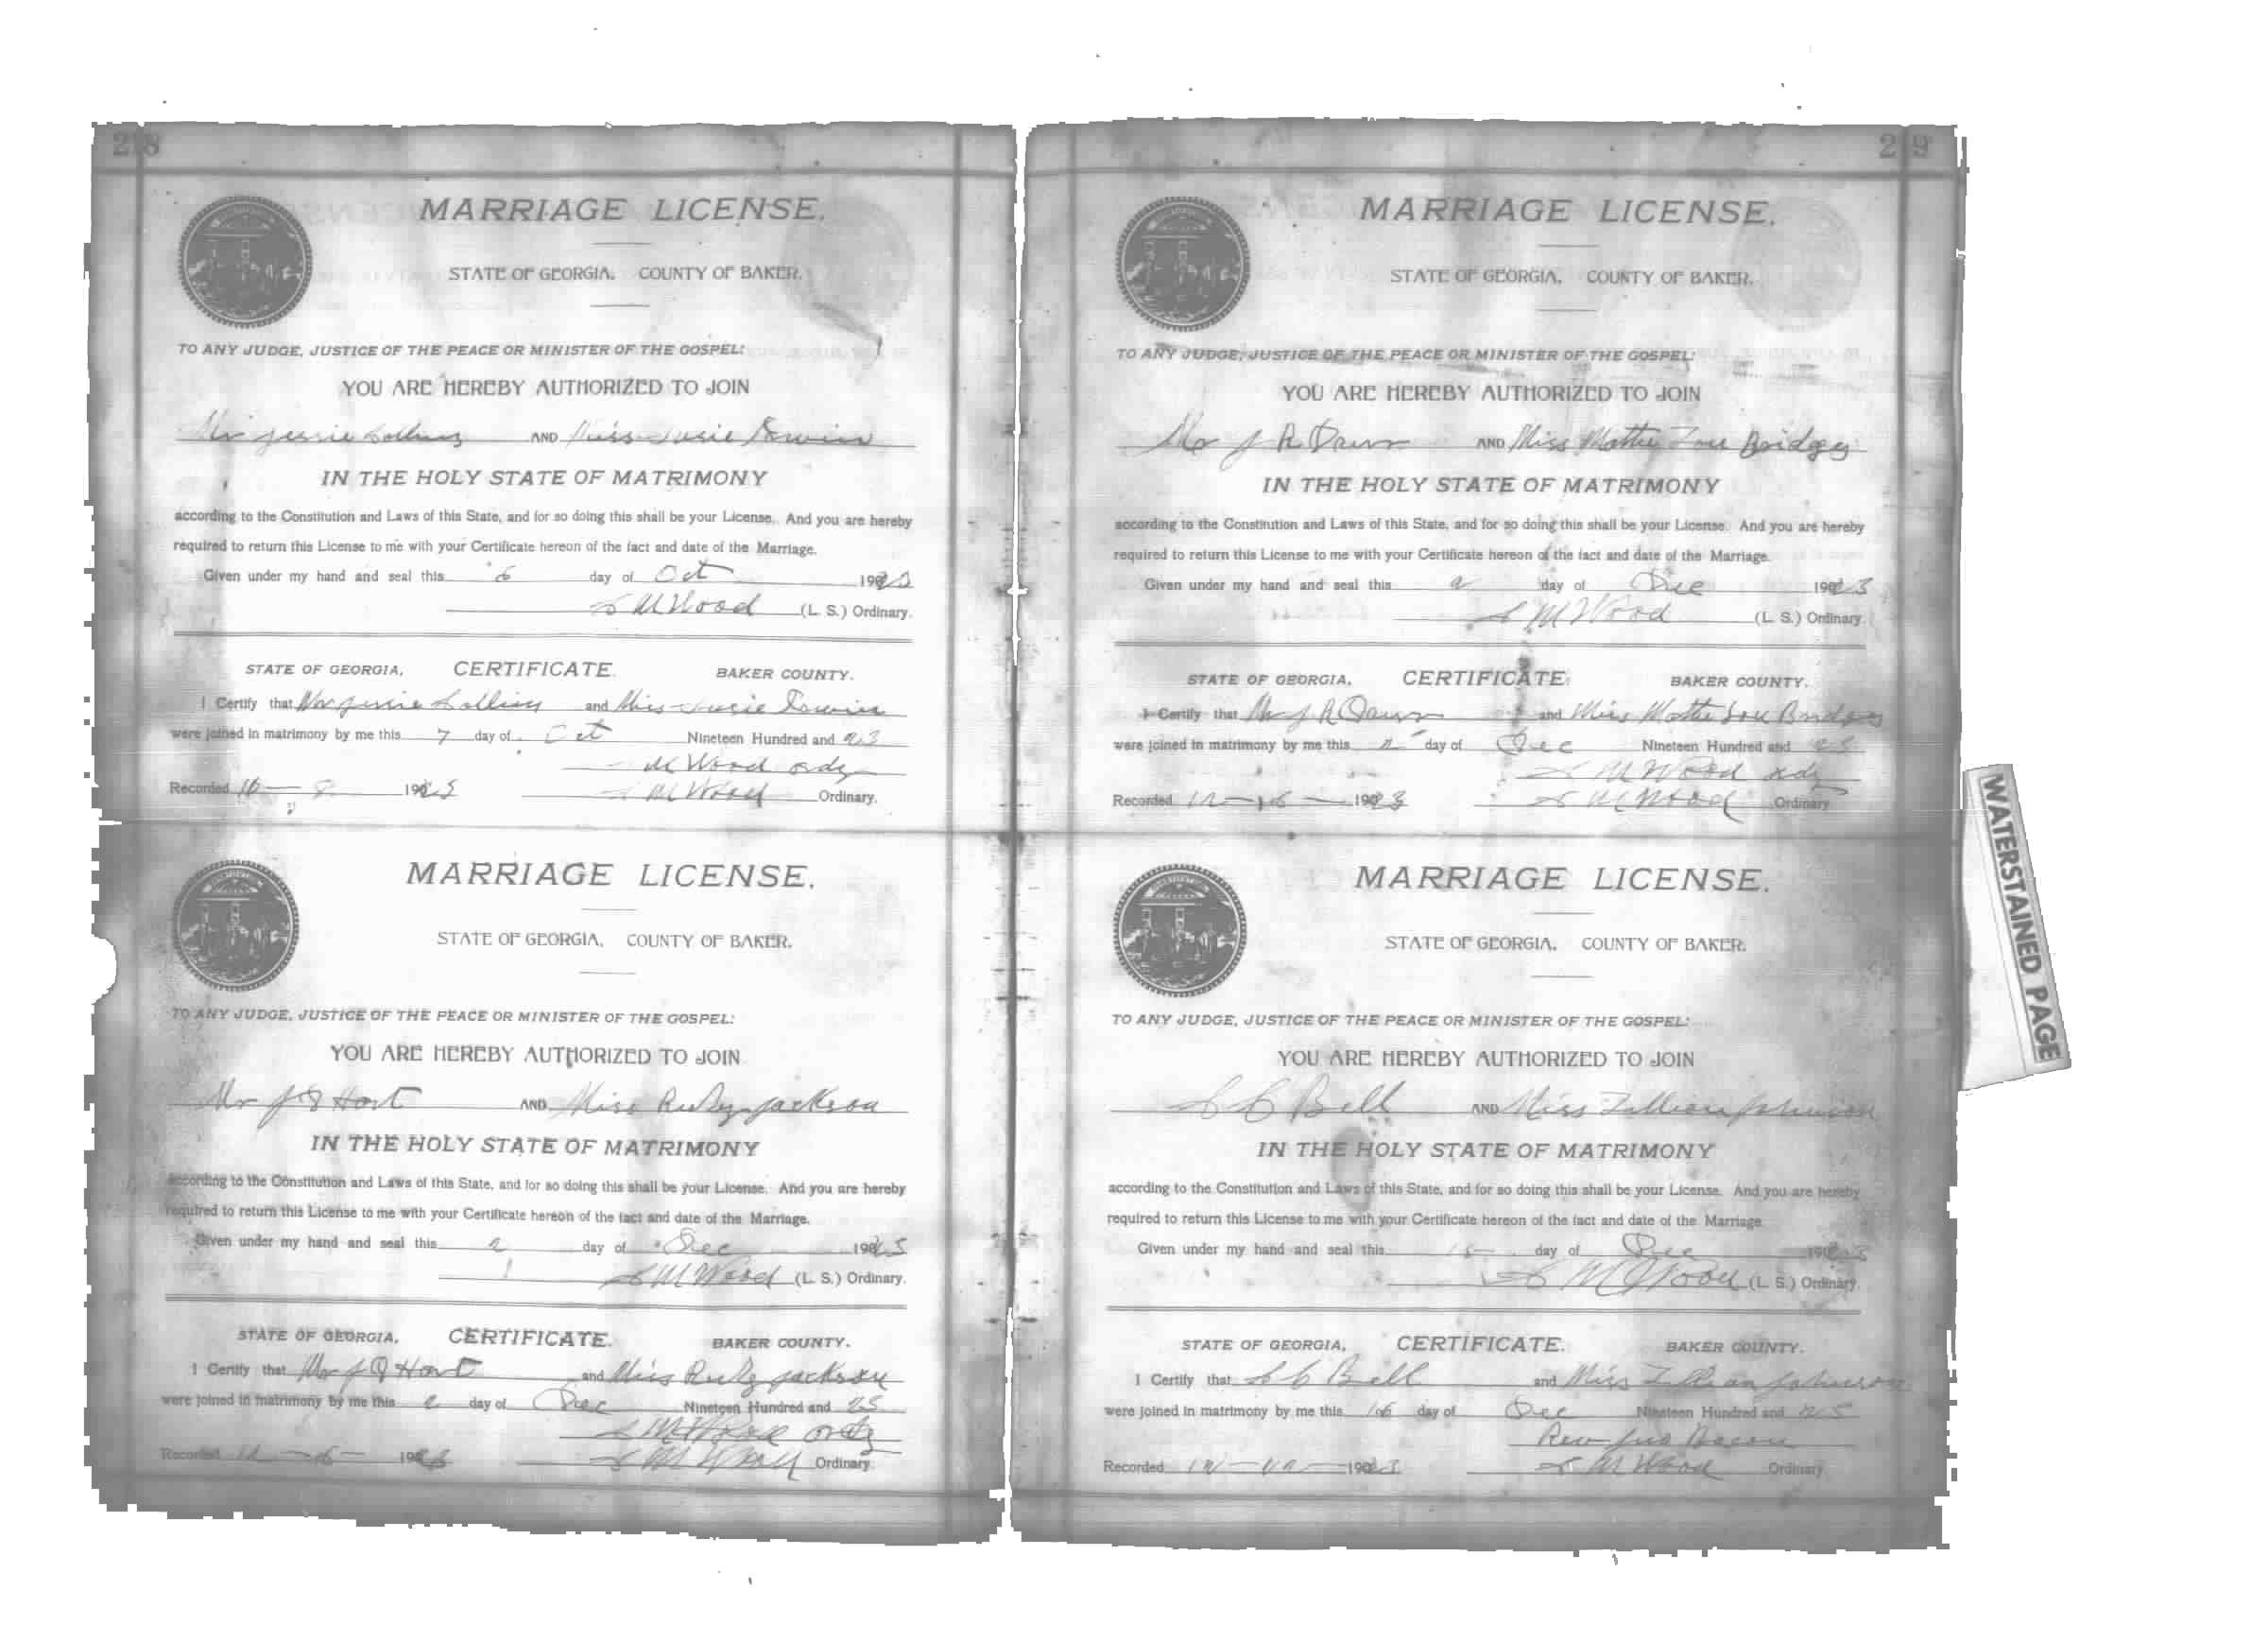 218
MARRIAGE LICENSE.
STATE OF GEORGIA, COUNTY OF BAKER.
TO ANY JUDGE, JUSTICE OF THE PEACE OR MINISTER OF THE GOSPEL:
YOU ARE HEREBY AUTHORIZED TO JOIN
Mr Jessie Collins AND Miss Susie
IN THE HOLY STATE OF MATRIMONY
according to the Constitution and Laws of this State, and for so doing this shall be your License. And you are hereby
required to return this License to me with your Certificate hereon of the fact and date of the Marriage.
Given under my hand and seal this 6 day of Oct 1923
S M Wood (L. S.) Ordinary.
STATE OF GEORGIA, CERTIFICATE. BAKER COUNTY.
I Certify that Mr Jessie Collins and Miss Susie
were joined in matrimony by me this 7 day of Oct Nineteen Hundred and 23
M Wood ordy
Recorded 10 - 8 1923 S M Wood Ordinary.
MARRIAGE LICENSE.
STATE OF GEORGIA, COUNTY OF BAKER.
TO ANY JUDGE, JUSTICE OF THE PEACE OR MINISTER OF THE GOSPEL:
YOU ARE HEREBY AUTHORIZED TO JOIN
Mr J Hart AND Miss Ruby Jackson
IN THE HOLY STATE OF MATRIMONY
according to the Constitution and Laws of this State, and for so doing this shall be your License. And you are hereby
required to return this License to me with your Certificate hereon of the fact and date of the Marriage.
Given under my hand and seal this 2 day of Dec 1923
S M Wood (L. S.) Ordinary.
STATE OF GEORGIA, CERTIFICATE. BAKER COUNTY.
I Certify that Mr J Hart and Miss Ruby Jackson
were joined in matrimony by me this 2 day of Dec Nineteen Hundred and 23
S M Wood ordy
Recorded 12 - 6 - 1923 S M Wood Ordinary.
219
MARRIAGE LICENSE.
STATE OF GEORGIA, COUNTY OF BAKER.
TO ANY JUDGE, JUSTICE OF THE PEACE OR MINISTER OF THE GOSPEL:
YOU ARE HEREBY AUTHORIZED TO JOIN
Mr J R AND Miss Mattie Lou Bridges
IN THE HOLY STATE OF MATRIMONY
according to the Constitution and Laws of this State, and for so doing this shall be your License. And you are hereby
required to return this License to me with your Certificate hereon of the fact and date of the Marriage.
Given under my hand and seal this 2 day of Dec 1923
S M Wood (L. S.) Ordinary.
STATE OF GEORGIA, CERTIFICATE. BAKER COUNTY.
I Certify that Mr J R and Miss Mattie Lou Bridges
were joined in matrimony by me this 2 day of Dec Nineteen Hundred and 23
S M Wood ordy
Recorded 12 - 6 - 1923 S M Wood Ordinary
MARRIAGE LICENSE.
STATE OF GEORGIA, COUNTY OF BAKER.
TO ANY JUDGE, JUSTICE OF THE PEACE OR MINISTER OF THE GOSPEL:
YOU ARE HEREBY AUTHORIZED TO JOIN
Bell AND Miss Lillian Johnson
IN THE HOLY STATE OF MATRIMONY
according to the Constitution and Laws of this State, and for so doing this shall be your License. And you are hereby
required to return this License to me with your Certificate hereon of the fact and date of the Marriage.
Given under my hand and seal this 15 day of Dec 1923
S M Wood (L. S.) Ordinary.
STATE OF GEORGIA, CERTIFICATE. BAKER COUNTY.
I Certify that Bell and Miss Lillian Johnson
were joined in matrimony by me this 16 day of Dec Nineteen Hundred and 23
Rev Jno Bacon
Recorded 1923 S M Wood Ordinary
WATERSTAINED PAGE